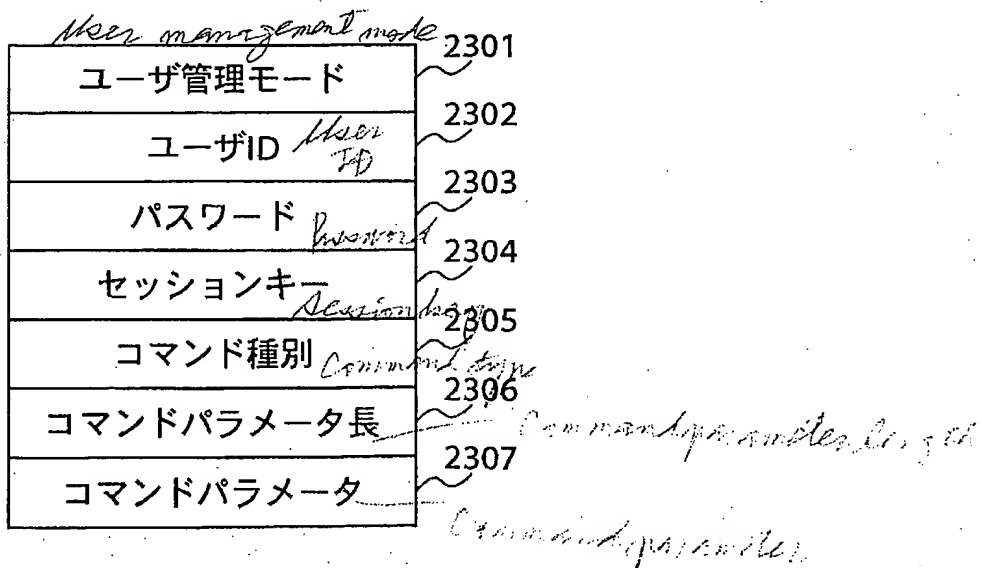 User management mode
ユーザ管理モード 2301
ユーザID User ID 2302
パスワード Password 2303
セッションキー Session key 2304
コマンド種別 Command type 2305
コマンドパラメータ長 Command parameter length 2306
コマンドパラメータ Command parameter 2307